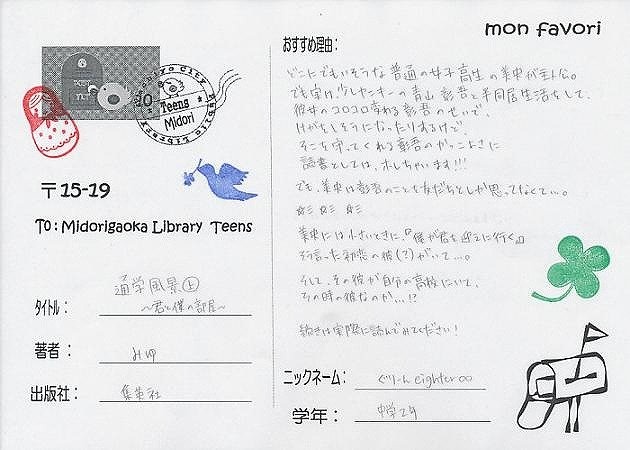 mon favori
Teens
Midori
〒15-19
To: Midorigaoka Library Teens
タイトル：通学風景㊤
～君と僕の部屋～
著者：みゆ
出版社：集英社
おすすめ理由：
どこにでもいそうな普通の女子高生の美東が主人公。
でも実は少しヤンキーの青山彰吾と半同居生活をして、
彼女のコロコロ変わる彰吾のせいで、
けがをしそうになったりするけど、
そこも守ってくれる彰吾のかっこよさに
読書としては、ホレちゃいます!!!
でも、美東は彰吾のことを友だちとしか思ってなくて…。
美東には小さいときに、『僕が君を迎えに行く』
と言った初恋の彼(?)がいて…。
そして、その彼が自分の高校にいて、
その時の彼なのか…!?
続きは実際に読んでみてください！
ニックネーム：ぐりーん eighter∞
学年：中学2年